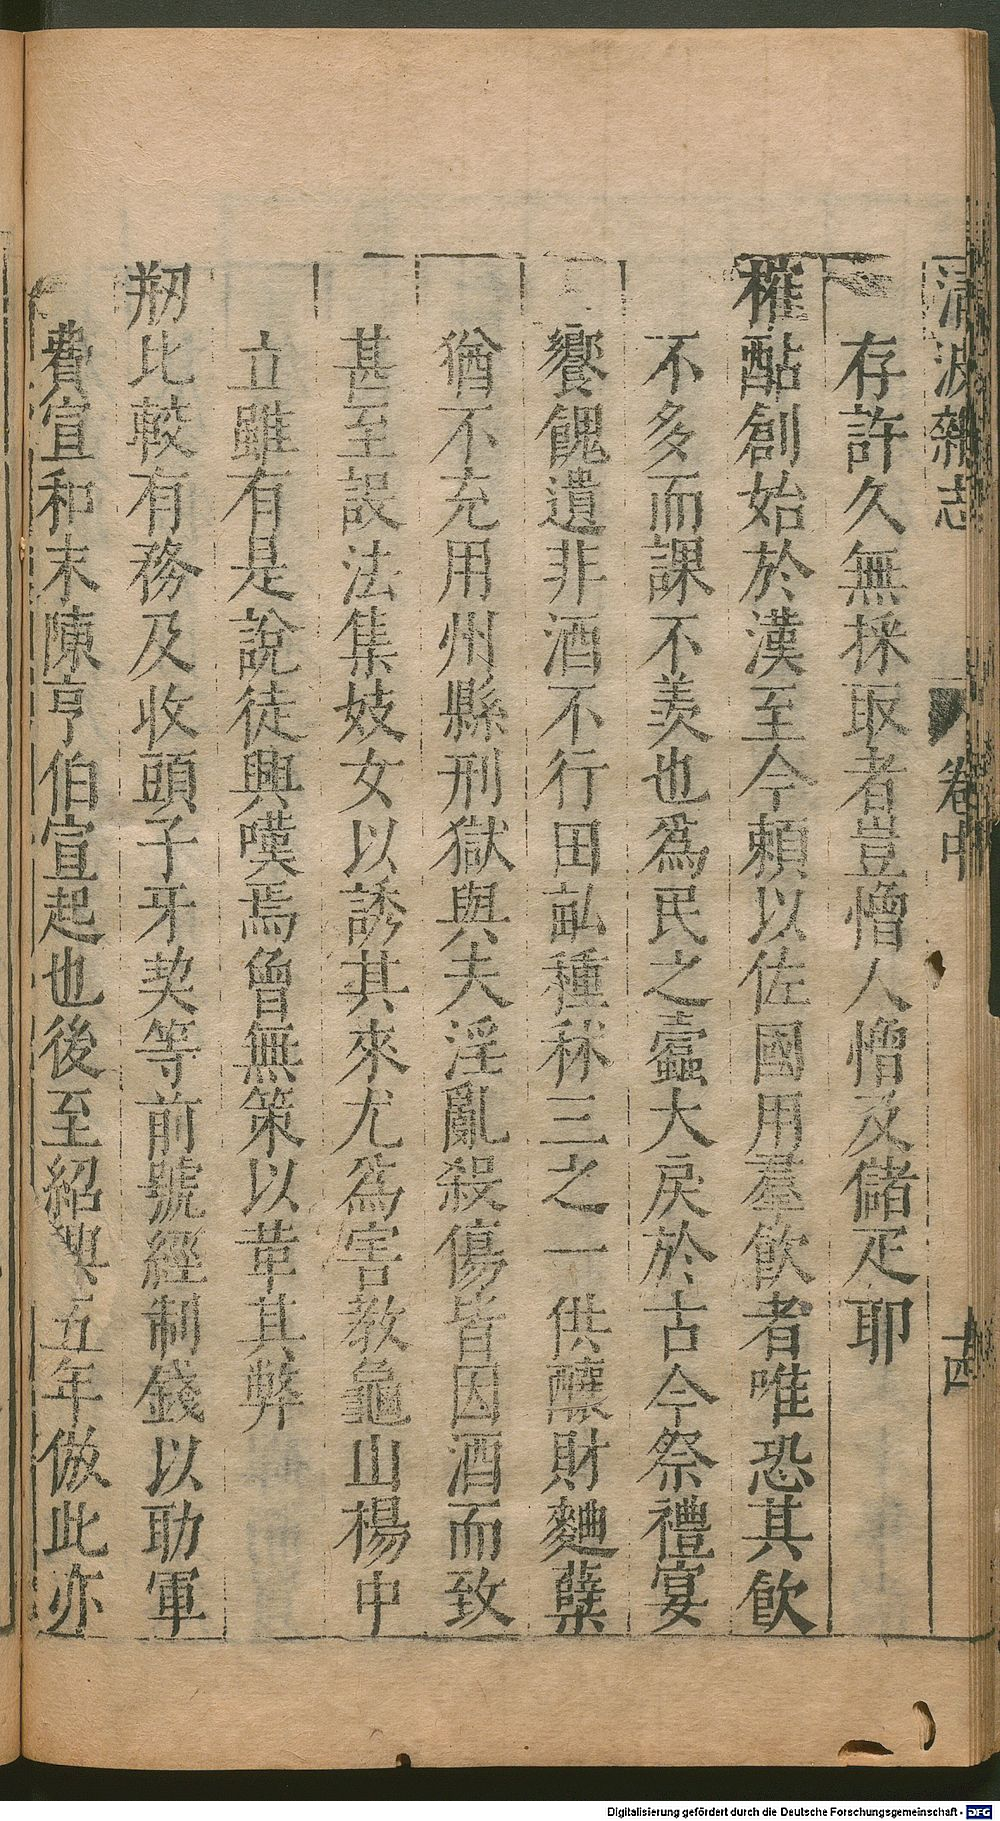 清波雜志 卷中 十四
存許久無採取者豈憎人憎及儲疋耶
榷酤創始於漢至今賴以佐國用羣飲者唯恐其飲
不多而課不羨也為民之蠧大戾於古今祭禮宴
饗餽遺非酒不行田畝種秫三之一供釀財麯蘖
猶不充用州縣刑獄與夫淫亂殺傷皆因酒而致
甚至設法集妓女以誘其來尤為害教龜山楊中
立雖有是說徒興嘆焉曾無策以革其弊
剏比較有務及收頭子牙契等前號經制錢以助軍
費宣和末陳亨伯宣起也後至紹興五年倣此亦
Digitalisierung gefördert durch die Deutsche Forschungsgemeinschaft - DFG